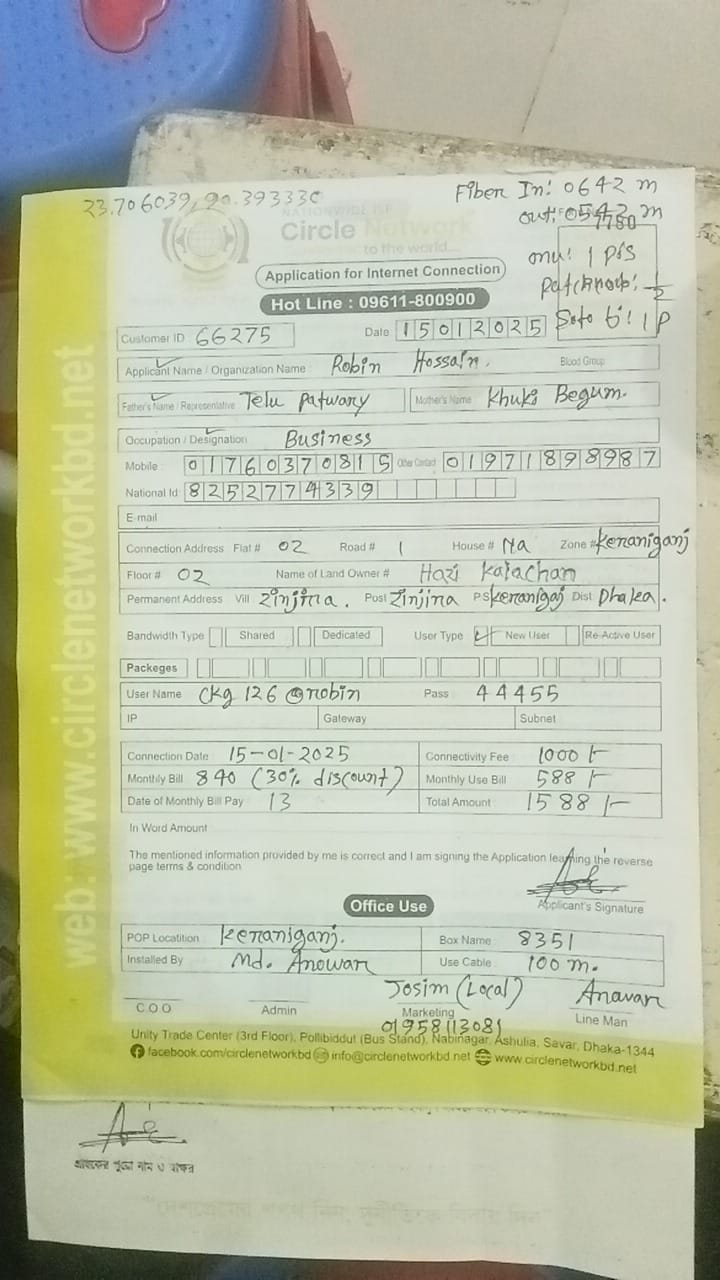 23.706039, 90.39333
Fiber In: 0642 m
out: 0542 m
7780
NATIONWIDE ISP
Circle Network
to the world...
onu: 1 Pis
Application for Internet Connection
Hot Line : 09611-800900
Customer ID 66275
Date 15012025
Applicant Name / Organization Name Robin Hossain.
Blood Group
Father's Name / Representative Telu Patwary
Mother's Name Khuki Begum.
Occupation / Designation Business
Mobile : 01760370815 Other Contact 01971898987
National Id: 8252774339
E-mail
Connection Address Flat # 02 Road # 1 House # Na Zone # Kenaniganj
Floor # 02 Name of Land Owner # Hazi Kalachan
Permanent Address Vill Zinjina. Post Zinjina PS Keraniganj Dist Dhaka.
Bandwidth Type Shared Dedicated User Type New User Re-Active User
Packeges
User Name Ckg 126 @robin Pass 44455
IP Gateway Subnet
Connection Date 15-01-2025 Connectivity Fee 1000/-
Monthly Bill 840 (30% discount) Monthly Use Bill 588/-
Date of Monthly Bill Pay 13 Total Amount 1588/-
In Word Amount
The mentioned information provided by me is correct and I am signing the Application learning the reverse
page terms & condition
Applicant's Signature
Office Use
POP Locatition Kenaniganj. Box Name 8351
Installed By Md. Anowar Use Cable 100 m.
Josim (Local) Anawar
C.O.O Admin Marketing Line Man
01958113081
Unity Trade Center (3rd Floor), Pollibiddut (Bus Stand), Nabinagar, Ashulia, Savar, Dhaka-1344
facebook.com/circlenetworkbd info@circlenetworkbd.net www.circlenetworkbd.net
web: www.circlenetworkbd.net